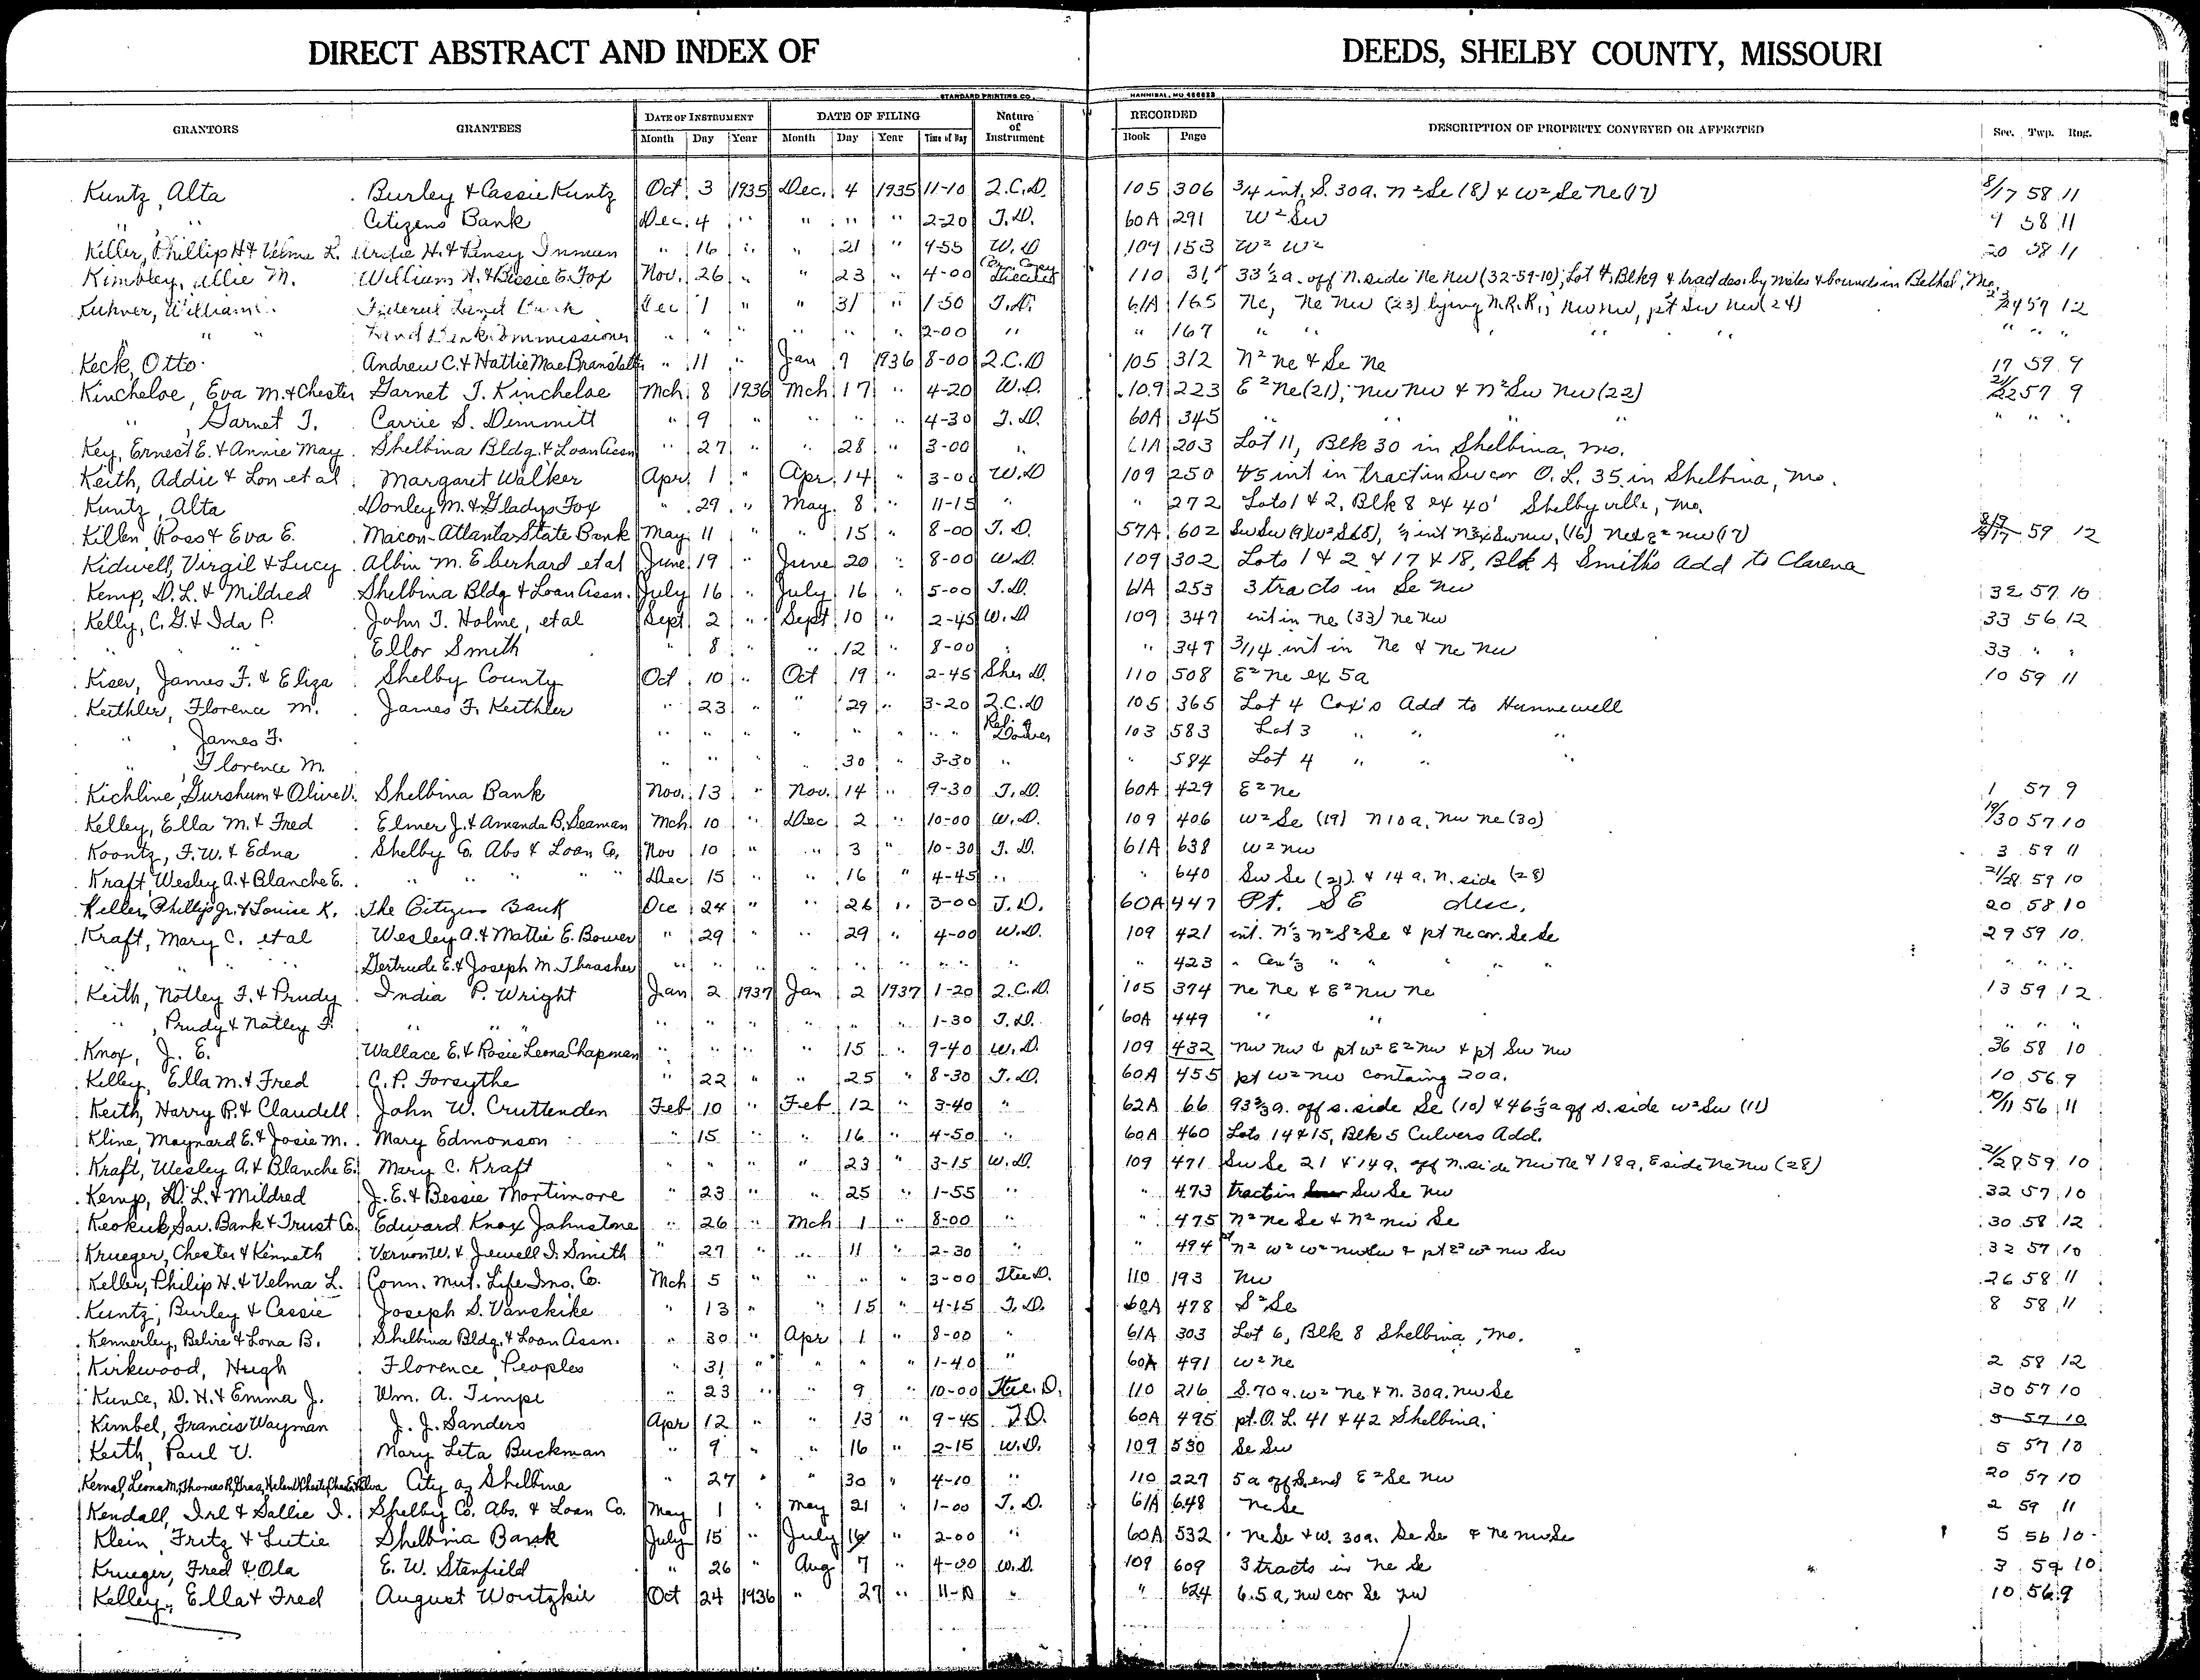 DIRECT ABSTRACT AND INDEX OF DEEDS, SHELBY COUNTY, MISSOURI
STANDARD PRINTING CO. HANNIBAL, MO
GRANTORS GRANTEES DATE OF INSTRUMENT DATE OF FILING Nature of Instrument RECORDED DESCRIPTION OF PROPERTY CONVEYED OR AFFECTED Sec. Twp. Rng.
Month Day Year Month Day Year Time of Day Book Page
Kuntz, Alta Burley & Cassie Kuntz Oct 3 1935 Dec. 4 1935 11-10 2.C.D. 105 306 3/4 int. S. 30a. n²Se (8) & W² Se Ne (17) 8/17 58 11
" " Citizens Bank Dec. 4 " " " " 2-20 T.D. 60A 291 W² Sw 9 58 11
Keller, Phillip H & Velma L. H. & Pansy Inman " 16 " " 21 " 4-55 W.D 109 153 W² W² 20 58 11
Kimbley, Allie M. William H. & Bessie E. Fox Nov. 26 " " 23 " 4-00 110 31 33½a. off N. side Ne Nw (32-59-10); Lot 4, Blk 9 & tract des. by metes & bounds in Bethel, Mo.
Kuhner, William Federal Land Bank Dec 1 " " 31 " 1-50 T.D. 61A 165 Ne, Ne Nw (23) lying N.R.R.; Nw Nw, pt Sw Nw (24) 23/24 57 12
" " Land Bank Commissioner " " " " " " 2-00 " " 167 " " " " " " " "
Keck, Otto Andrew C. & Hattie Mae Branstetter " 11 " Jan 7 1936 8-00 2.C.D 105 312 N² Ne & Se Ne 17 59 9
Kincheloe, Eva M. & Chester Garnet T. Kincheloe Mch 8 1936 Mch 17 " 4-20 W.D. 109 223 E² Ne (21); Nw Nw & N² Sw Nw (22) 21/22 57 9
" , Garnet T. Carrie S. Dimmitt " 9 " " " 4-30 T.D. 60A 345 " " " " " "
Key, Ernest E. & Annie May Shelbina Bldg. & Loan Assn " 27 " " 28 " 3-00 " 61A 203 Lot 11, Blk 30 in Shelbina, Mo.
Keith, Addie & Lon et al Margaret Walker Apr. 1 " Apr. 14 " 3-00 W.D 109 250 4/5 int in tract in Sw cor O.L. 35 in Shelbina, Mo.
Kuntz, Alta Donley M. & Gladys Fox " 29 " May 8 " 11-15 " " 272 Lots 1 & 2, Blk 8 ex 40' Shelbyville, Mo.
Killen, Ross & Eva E. Macon-Atlanta State Bank May 11 " " 15 " 8-00 T.D. 57A 602 Sw Sw (9) 59 12
Kidwell, Virgil & Lucy Albin M. Eberhard et al June 19 " June 20 " 8-00 W.D. 109 302 Lots 1 & 2 & 17 & 18, Blk A Smith's Add to Clarence
Kemp, D.L. & Mildred Shelbina Bldg & Loan Assn. July 16 " July 16 " 5-00 T.D. 61A 253 3 tracts in Se Nw 32 57 10
Kelly, C.G. & Ida P. John T. Holme, et al Sept 2 " Sept 10 " 2-45 W.D 109 347 int in Ne (33) Ne Nw 33 56 12
" " " Ellor Smith " 8 " " 12 " 8-00 " " 349 3/14 int in Ne & Ne Nw 33 " "
Kiser, James F. & Eliza Shelby County Oct 10 " Oct 19 " 2-45 Sher D. 110 508 E² Ne ex 5a 10 59 11
Keithler, Florence M. James F. Keithler " 23 " " 29 " 3-20 2.C.D 105 365 Lot 4 Cox's Add to Hunnewell
" , James F. " " " " " " " " Rel. of Dower 103 583 Lot 3 " " "
" , Florence M. " " " 30 " 3-30 " " 584 Lot 4 " " "
Kichline, Gurshum & Olive V. Shelbina Bank Nov. 13 " Nov. 14 " 9-30 T.D. 60A 429 E² Ne 1 57 9
Kelley, Ella M. & Fred Elmer J. & Amanda B. Seaman Mch 10 " Dec 2 " 10-00 W.D. 109 406 W² Se (19) N 10a, Nw Ne (30) 19/30 57 10
Koontz, F.W. & Edna Shelby Co. Abs & Loan Co. Nov 10 " " 3 " 10-30 T.D. 61A 638 W² Nw 3 59 11
Kraft, Wesley A. & Blanche E. " " " " Dec 15 " " 16 " 4-45 " " 640 Sw Se (21) & 14a. N. side (28) 21/28 59 10
Keller, Phillip Jr. & Louise K. The Citizens Bank Dec 24 " " 26 " 3-00 T.D. 60A 447 Pt. SE desc. 20 58 10
Kraft, Mary C. et al Wesley A. & Mattie E. Bower " 29 " " 29 " 4-00 W.D. 109 421 int. N⅓ N² S² Se & pt Ne cor. Se Se 29 59 10
" " " Gertrude E. & Joseph M. Thrasher " " " " " " " " " 423 " Cen ⅓ " " " " " " " "
Keith, Notley F. & Prudy India P. Wright Jan 2 1937 Jan 2 1937 1-20 2.C.D. 105 374 Ne Ne & E² Nw Ne 13 59 12
" , Prudy & Notley F. " " " " " " " " " 1-30 T.D. 60A 449 " " " " "
Knox, J. E. Wallace E. & Rosie Leona Chapman " " " " 15 " 9-40 W.D. 109 432 Nw Nw & pt W² E² Nw & pt Sw Nw 36 58 10
Kelley, Ella M. & Fred C.P. Forsythe " 22 " " 25 " 8-30 T.D. 60A 455 pt W² Nw containg 20a. 10 56 9
Keith, Harry R. & Claudell John W. Cruttenden Feb 10 " Feb 12 " 3-40 " 62A 66 93⅔a. off s. side Se (10) & 46⅓a off s. side W² Sw (11) 10/11 56 11
Kline, Maynard E. & Josie M. Mary Edmonson " 15 " " 16 " 4-50 " 60A 460 Lots 14 & 15, Blk 5 Culvers Add.
Kraft, Wesley A. & Blanche E. Mary C. Kraft " " " " 23 " 3-15 W.D. 109 471 Sw Se 21 & 14a. off N. side Nw Ne & 18a, E side Ne Nw (28) 21/28 59 10
Kemp, D.L. & Mildred J.E. & Bessie Mortimore " 23 " " 25 " 1-55 " " 473 tract in Sw Se Nw 32 57 10
Keokuk Sav. Bank & Trust Co. Edward Knox Johnstone " 26 " Mch 1 " 8-00 " " 475 N² Ne Se & N² Nw Se 30 58 12
Krueger, Chester & Kenneth Vernon W. & Jewell I. Smith " 27 " " 11 " 2-30 " " 494 N² W² W² Nw Sw & pt E² W² Nw Sw 32 57 10
Keller, Philip H. & Velma L. Conn. Mut. Life Ins. Co. Mch 5 " " " " 3-00 Ttee D. 110 193 Nw 26 58 11
Kuntz, Burley & Cassie Joseph S. Vanskike " 13 " " 15 " 4-15 T.D. 60A 478 S² Se 8 58 11
Kennerley, Belvie & Lona B. Shelbina Bldg. & Loan Assn. " 30 " Apr 1 " 8-00 " 61A 303 Lot 6, Blk 8 Shelbina, Mo.
Kirkwood, Hugh Florence Peoples " 31 " " " " 1-40 " 60A 491 W² Ne 2 58 12
Kunce, D.H. & Emma J. Wm. A. Timpe " 23 " " 9 " 10-00 Ttee. D. 110 216 S. 70a. W² Ne & N. 30a. Nw Se 30 57 10
Kimbel, Francis Wayman J. J. Sanders Apr 12 " " 13 " 9-45 T.D. 60A 495 pt. O.L. 41 & 42 Shelbina. 5 57 10
Keith, Paul V. Mary Leta Buckman " 9 " " 16 " 2-15 W.D. 109 530 Se Sw 5 57 10
City of Shelbina " 27 " " 30 " 4-10 " 110 227 5a off S. end E² Se Nw 20 57 10
Kendall, Irl & Sallie I. Shelby Co. Abs. & Loan Co. May 1 " May 21 " 1-00 T.D. 61A 648 Ne Se 2 59 11
Klein, Fritz & Lutie Shelbina Bank July 15 " July 16 " 2-00 " 60A 532 Ne Se & W. 30a. Se Se & Ne Nw Se 5 56 10
Krueger, Fred & Ola E. W. Stanfield " 26 " Aug 7 " 4-00 W.D. 109 609 3 tracts in Ne Se 3 59 10
Kelley, Ella & Fred August Woitzkie Oct 24 1936 " 27 " 11-10 " " 624 6.5a, Nw cor Se Nw 10 56 9